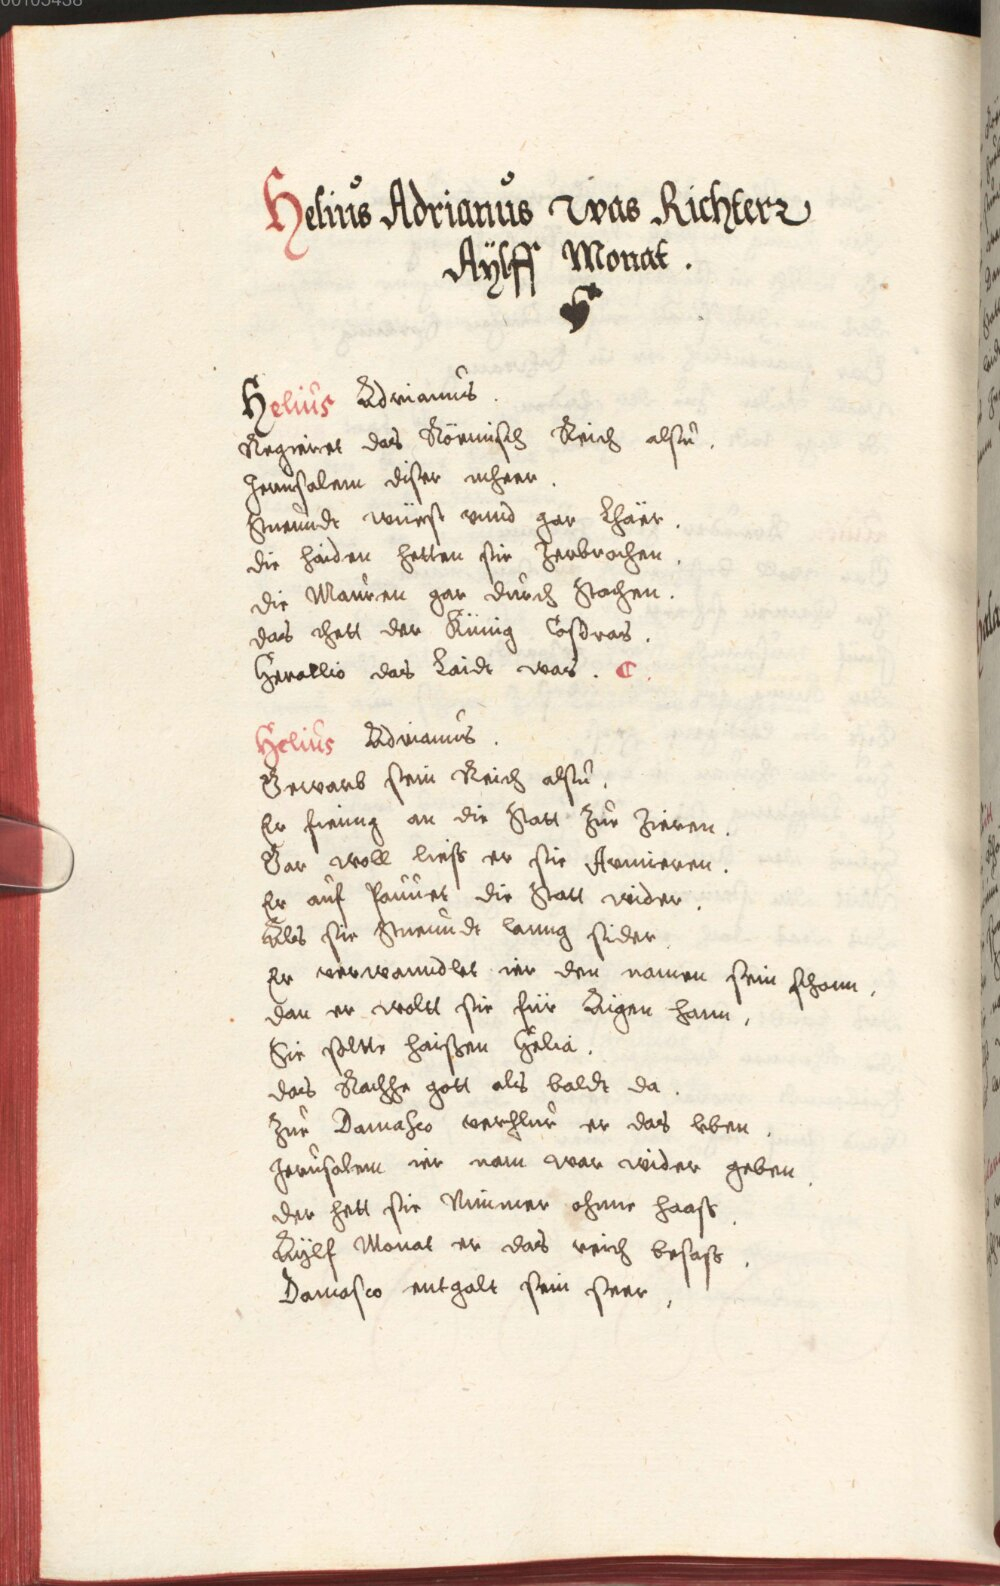 00105458
Helius Adrianus was Richter
Aÿlff Monat .
Helius Adrianus .
Regieret das Römisch Reich alsu .
Jerusalem diser mheer .
Stuendt wüest vnnd gar Lhäer .
die haiden hetten sie Zerbrochen .
die Mauren gar durch Stochen .
das thett der Künig Cosdras .
Heracllio das Laidt was .
Helius Adrianus .
Erwarb sein Reich alsu .
Er fienng an die Statt Zur Zieren .
Gar woll liess er sie Armieren .
Er auf Pauuet die Statt wider .
Als sie Stuendt lanng sider
Er verwanndlet ier den namen sein schonn .
dan er woltt sie für Aigen hann .
Sie soltte haissen Helia .
das Rachhe gott als baldt da .
Zur Damasco verhlur er das leben .
Jerusalem ier nam war wider geben .
der hett sie Nimmer ohnne hass .
Aÿlf Monat er das reich besass .
Damasco entgalt sein seer .